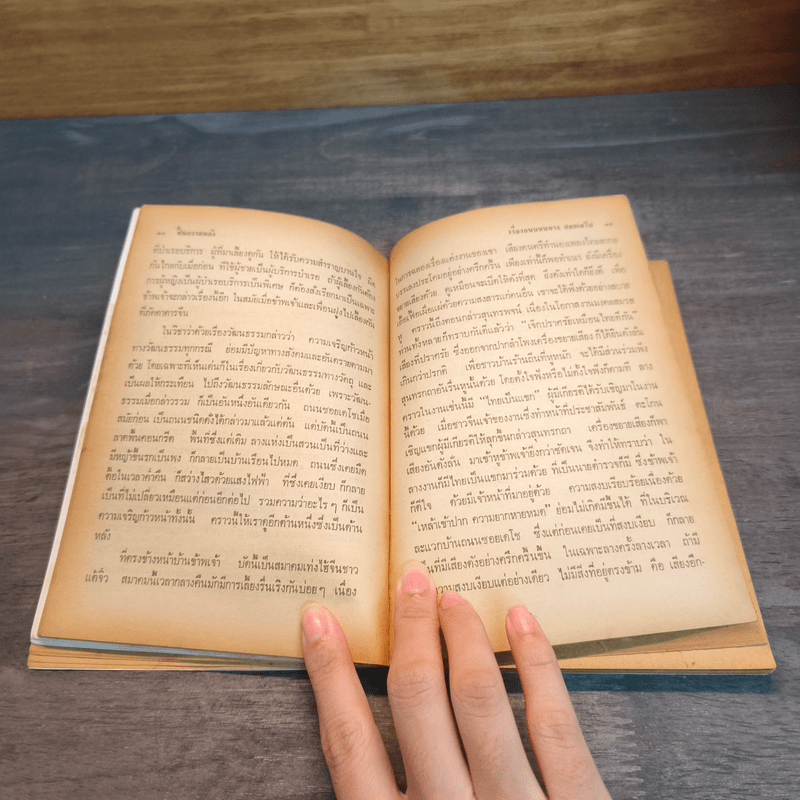 ๑๐ ฟื้นความหลัง
ที่บำเรอบริการ ผู้ที่มาเลี้ยงดูกัน ให้ได้รับความสำราญบานใจ ผิด
กันไกลกับเมื่อก่อน ที่ใช้ผู้ชายเป็นผู้บริการบำเรอ ถ้าผู้เลี้ยงกันต้อง
การผู้หญิงเป็นผู้บำเรอบริการเป็นพิเศษ ก็ต้องสั่งเรียกมาเป็นเฉพาะ
ข้าพเจ้าจะกล่าวเรื่องนี้อีก ในสมัยเมื่อข้าพเจ้าและเพื่อนฝูงไปเลี้ยงกัน
ที่ภัตตาคารจีน
ในวิชาว่าด้วยเรื่องวัฒนธรรมกล่าวว่า ความเจริญก้าวหน้า
ทางวัฒนธรรมทุกกรณี ย่อมมีปัญหาทางสังคมและอันตรายตามมา
ด้วย โดยเฉพาะที่เห็นเด่นก็ในเรื่องเกี่ยวกับวัฒนธรรมทางวัตถุ และ
เป็นผลให้กระเทือน ไปถึงวัฒนธรรมลักษณะอื่นด้วย เพราะวัฒน-
ธรรมเมื่อกล่าวรวม ก็เป็นอันหนึ่งอันเดียวกัน ถนนซอยเดโชเมื่อ
สมัยก่อน เป็นถนนชนิดดั่งได้กล่าวมาแล้วแต่ต้น แต่บัดนี้เป็นถนน
ลาดพื้นคอนกรีต พื้นที่ซึ่งแต่เดิม ลางแห่งเป็นสวนเป็นที่ว่างและ
มีหญ้าขึ้นรกเป็นพง ก็กลายเป็นบ้านเรือนไปหมด ถนนซึ่งเคยมืด
ตื้อในเวลาค่ำคืน ก็สว่างไสวด้วยแสงไฟฟ้า ที่ซึ่งเคยเงียบ ก็กลาย
เป็นที่ไม่เปลี่ยวเหมือนแต่ก่อนอีกต่อไป รวมความว่าอะไร ๆ ก็เป็น
ความเจริญก้าวหน้าทั้งนั้น คราวนี้ให้เราดูอีกด้านหนึ่งซึ่งเป็นด้าน
หลัง
ที่ตรงข้างหน้าบ้านข้าพเจ้า บัดนี้เป็นสมาคมเท่งไฮ้จีนชาว
แต้จิ๋ว สมาคมนี้เวลากลางคืนมักมีการเลี้ยงรื่นเริงกันบ่อย ๆ เนื่อง
เรื่องถนนหนทาง ซอยเดโช ๑๑
ในการฉลองเรื่องแต่งงานของเขา เสียงดนตรีทำนองเพลงไทยสากล
บรรเลงประโคมอยู่อย่างครึกครื้น เพียงเท่านี้ก็พอทำเนา ยังมีเครื่อง
ขยายเสียงด้วย ดูเหมือนจะเปิดให้ดังที่สุด ยิ่งดังเท่าใดก็ยิ่งดี เพื่อ
เอื้อเฟื้อเผื่อแผ่ด้วยความสงสารแก่คนอื่น เราจะได้พึงด้วยอย่างสบาย
หู คราวนี้ถึงตอนกล่าวสุนทรพจน์ เนื่องในโอกาสงานมงคลสมรส
ท่านทั้งหลายก็ทราบกันดีแล้วว่า “เจ๊กปราศรัยเหมือนไทยตีกัน”
เสียงที่ปราศรัย ซึ่งออกจากปากลำโพงเครื่องขยายเสียง ก็ได้ยินดังลั่น
เกินกว่าปรกติ เพื่อชาวบ้านร้านถิ่นที่หนวกหู จะได้มีส่วนร่วมฟัง
สุนทรกถาอันรื่นหูนั้นด้วย โดยตั้งใจฟังหรือไม่ตั้งใจฟังก็ตามที ลาง
คราวในงานเช่นนี้มี “ไทยเป็นแขก” ผู้มีเกียรติได้รับเชิญมาในงาน
นี้ด้วย เมื่อชาวจีนเจ้าของงานซึ่งทำหน้าที่ประชาสัมพันธ์ ตะโกน
เชิญแขกผู้มีเกียรติให้ลุกขึ้นกล่าวสุนทรกถา เครื่องขยายเสียงก็พา
เสียงอันดังลั่น มาเข้าหูข้าพเจ้ายิ่งกว่าชัดเจน จึงทำให้ทราบว่า ใน
ลางงานก็มีไทยเป็นแขกมาร่วมด้วย ที่เป็นนายตำรวจก็มี ซึ่งข้าพเจ้า
ก็ดีใจ ด้วยมีเจ้าหน้าที่มาอยู่ด้วย ความสงบเรียบร้อยเนื่องด้วย
“เหล้าเข้าปาก ความยากหายหมด” ย่อมไม่เกิดมีขึ้นได้ ที่ในบริเวณ
ละแวกบ้านถนนซอยเดโช ซึ่งแต่ก่อนเคยเป็นที่สงบเงียบ ก็กลาย
ไปมีเสียงดังอย่างครึกครื้นขึ้น ในเฉพาะลางครั้งลางเวลา ถ้ามี
ความสงบเงียบแต่อย่างเดียว ไม่มีสิ่งที่อยู่ตรงข้าม คือ เสียงอึก-